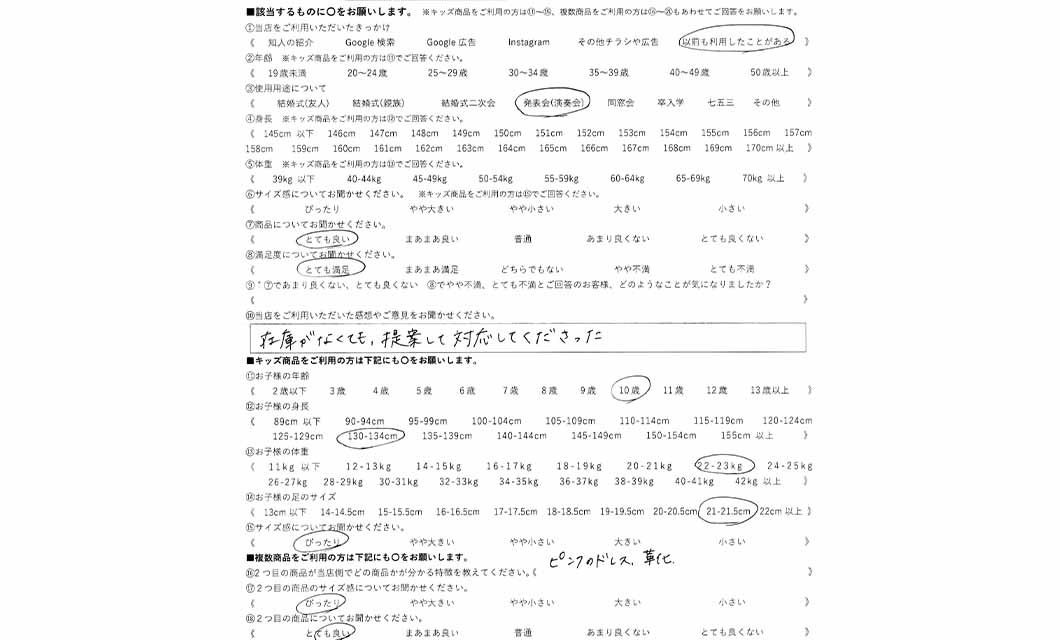 ■該当するものに〇をお願いします。 ※キッズ商品をご利用の方は⑪〜⑮、複数商品をご利用の方は⑯〜㉕もあわせてご回答をお願いします。
①当店をご利用いただいたきっかけ
《 知人の紹介 Google 検索 Google 広告 Instagram その他チラシや広告 以前も利用したことがある 》
②年齢 ※キッズ商品をご利用の方は⑪でご回答ください。
《 19歳未満 20〜24歳 25〜29歳 30〜34歳 35〜39歳 40〜49歳 50歳以上 》
③使用用途について
《 結婚式(友人) 結婚式(親族) 結婚式二次会 発表会(演奏会) 同窓会 卒入学 七五三 その他 》
④身長 ※キッズ商品をご利用の方は⑫でご回答ください。
《 145cm 以下 146cm 147cm 148cm 149cm 150cm 151cm 152cm 153cm 154cm 155cm 156cm 157cm
158cm 159cm 160cm 161cm 162cm 163cm 164cm 165cm 166cm 167cm 168cm 169cm 170cm以上 》
⑤体重 ※キッズ商品をご利用の方は⑬でご回答ください。
《 39kg 以下 40-44kg 45-49kg 50-54kg 55-59kg 60-64kg 65-69kg 70kg 以上 》
⑥サイズ感についてお聞かせください。 ※キッズ商品をご利用の方は⑮でご回答ください。
《 ぴったり やや大きい やや小さい 大きい 小さい 》
⑦商品についてお聞かせください。
《 とても良い まあまあ良い 普通 あまり良くない とても良くない 》
⑧満足度についてお聞かせください。
《 とても満足 まあまあ満足 どちらでもない やや不満 とても不満 》
⑨⑦であまり良くない、とても良くない ⑧でやや不満、とても不満とご回答のお客様、どのようなことが気になりましたか?
《 》
⑩当店をご利用いただいた感想やご意見をお聞かせください。
在庫がなくても、提案して対応してくださった
■キッズ商品をご利用の方は下記にも〇をお願いします。
⑪お子様の年齢
《 2歳以下 3歳 4歳 5歳 6歳 7歳 8歳 9歳 10歳 11歳 12歳 13歳以上 》
⑫お子様の身長
《 89cm 以下 90-94cm 95-99cm 100-104cm 105-109cm 110-114cm 115-119cm 120-124cm
125-129cm 130-134cm 135-139cm 140-144cm 145-149cm 150-154cm 155cm 以上 》
⑬お子様の体重
《 11kg 以下 12-13kg 14-15kg 16-17kg 18-19kg 20-21kg 22-23kg 24-25kg
26-27kg 28-29kg 30-31kg 32-33kg 34-35kg 36-37kg 38-39kg 40-41kg 42kg 以上 》
⑭お子様の足のサイズ
《 13cm以下 14-14.5cm 15-15.5cm 16-16.5cm 17-17.5cm 18-18.5cm 19-19.5cm 20-20.5cm 21-21.5cm 22cm以上 》
⑮サイズ感についてお聞かせください。
《 ぴったり やや大きい やや小さい 大きい 小さい 》
■複数商品をご利用の方は下記にも〇をお願いします。
⑯2つ目の商品が当店側でどの商品かが分かる特徴を教えてください。《 ピンクのドレス、草化 》
⑰2つ目の商品のサイズ感についてお聞かせください。
《 ぴったり やや大きい やや小さい 大きい 小さい 》
⑱2つ目の商品についてお聞かせください。
《 とても良い まあまあ良い 普通 あまり良くない とても良くない 》